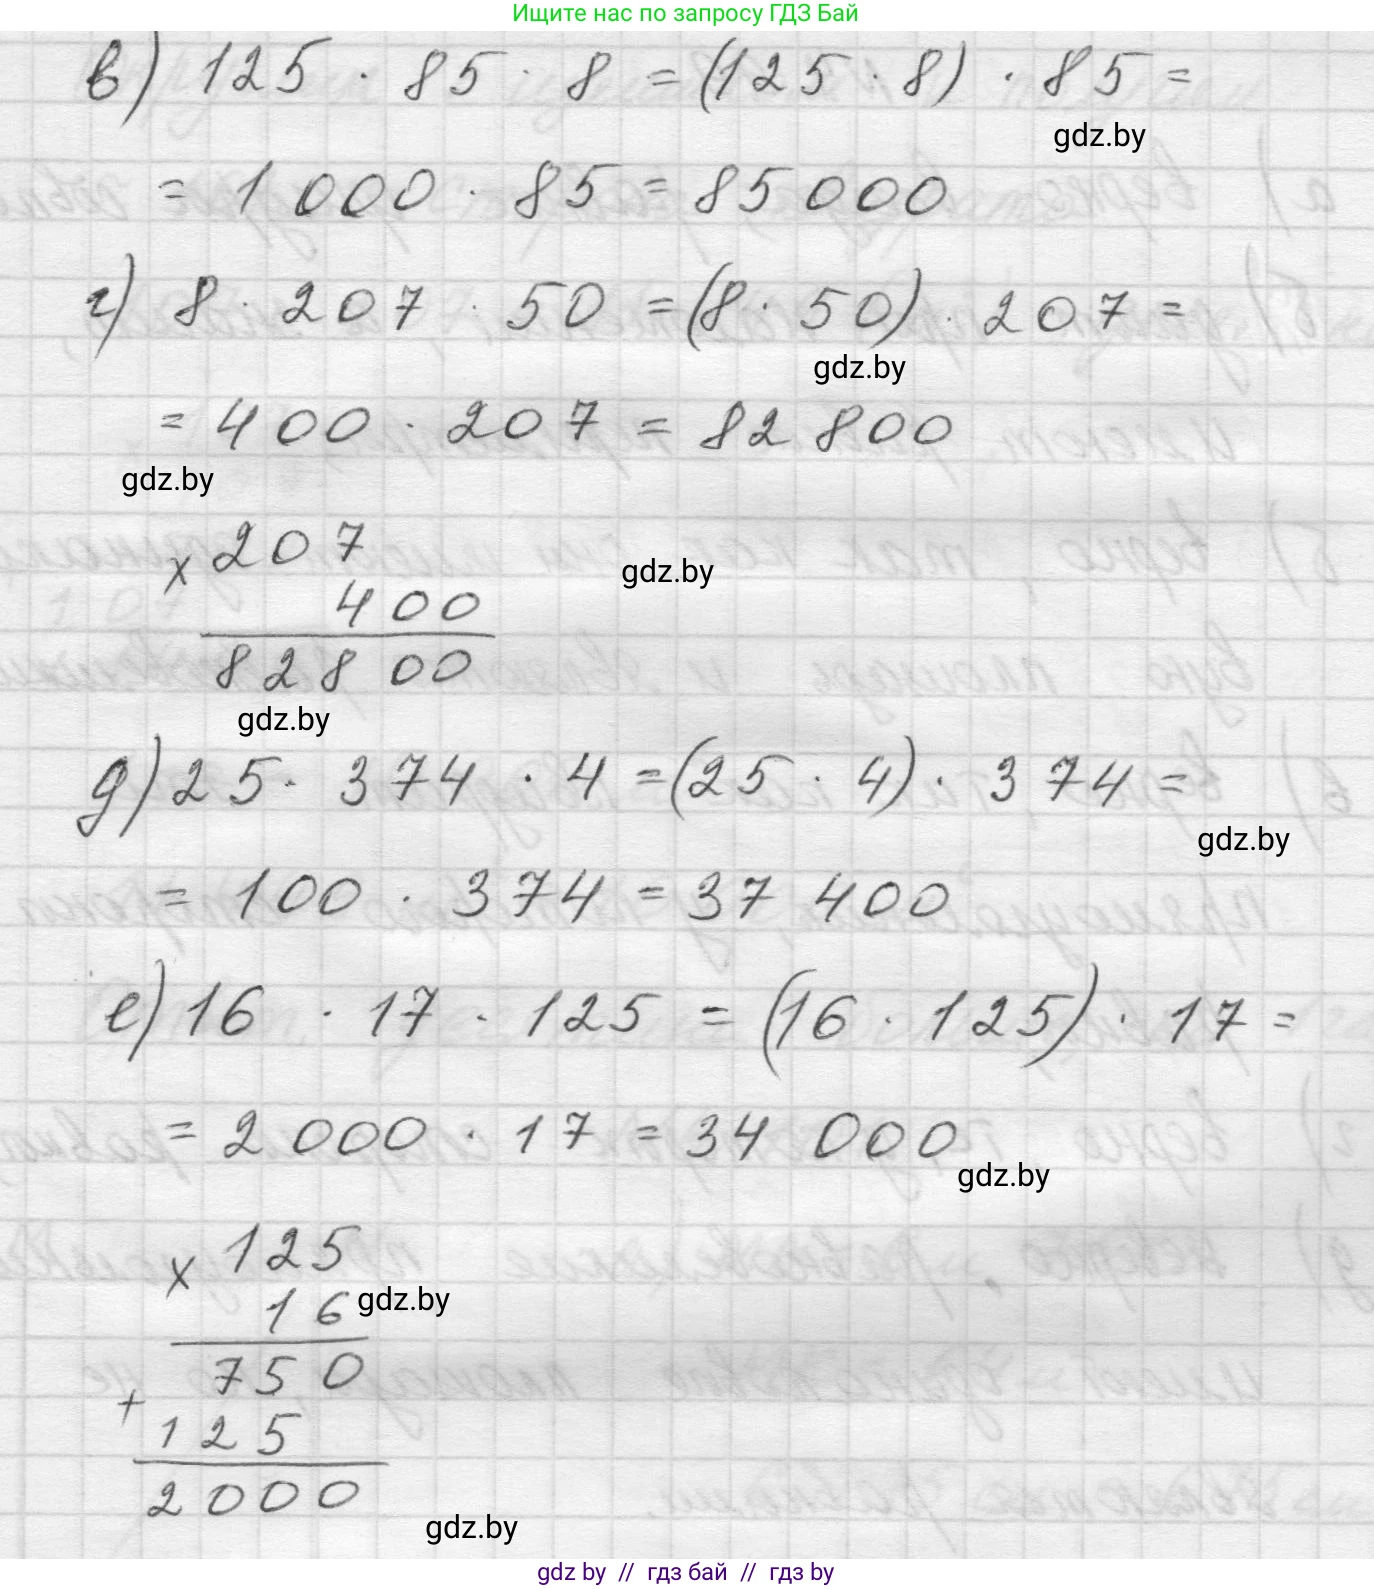 Ищите нас по запросу ГДЗ Бай
в) 125 · 85 · 8 = (125 · 8) · 85 =
gdz.by
= 1 000 · 85 = 85 000
г) 8 · 207 · 50 = (8 · 50) · 207 =
gdz.by
= 400 · 207 = 82 800
gdz.by
× 207
gdz.by
400
82 800
gdz.by
д) 25 · 374 · 4 = (25 · 4) · 374 =
gdz.by
= 100 · 374 = 37 400
е) 16 · 17 · 125 = (16 · 125) · 17 =
= 2 000 · 17 = 34 000
gdz.by
× 125
16
gdz.by
750
+ 125
2000
gdz.by
gdz by // гдз бай // gdz by